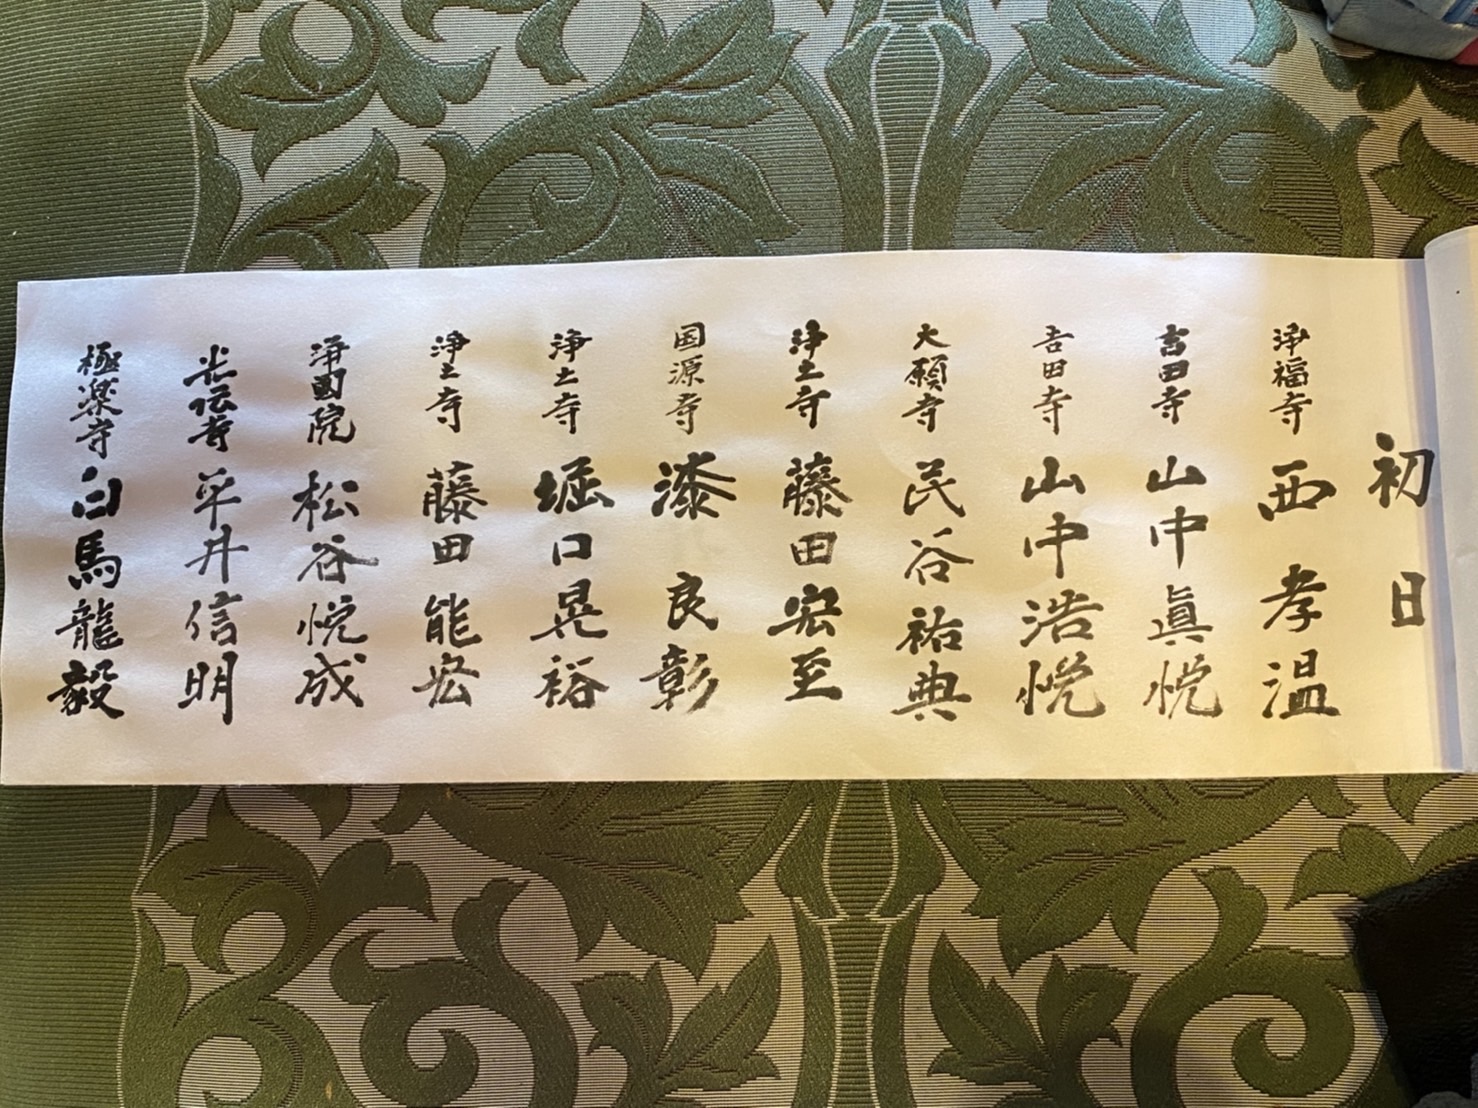 初日
浄福寺 西 孝温
吉田寺 山中眞悦
吉田寺 山中浩悦
大願寺 民谷祐典
浄土寺 藤田宏至
国源寺 漆 良彰
浄土寺 堀口晃裕
浄土寺 藤田能宏
浄國院 松谷悦成
光伝寺 平井信明
極楽寺 白馬龍毅